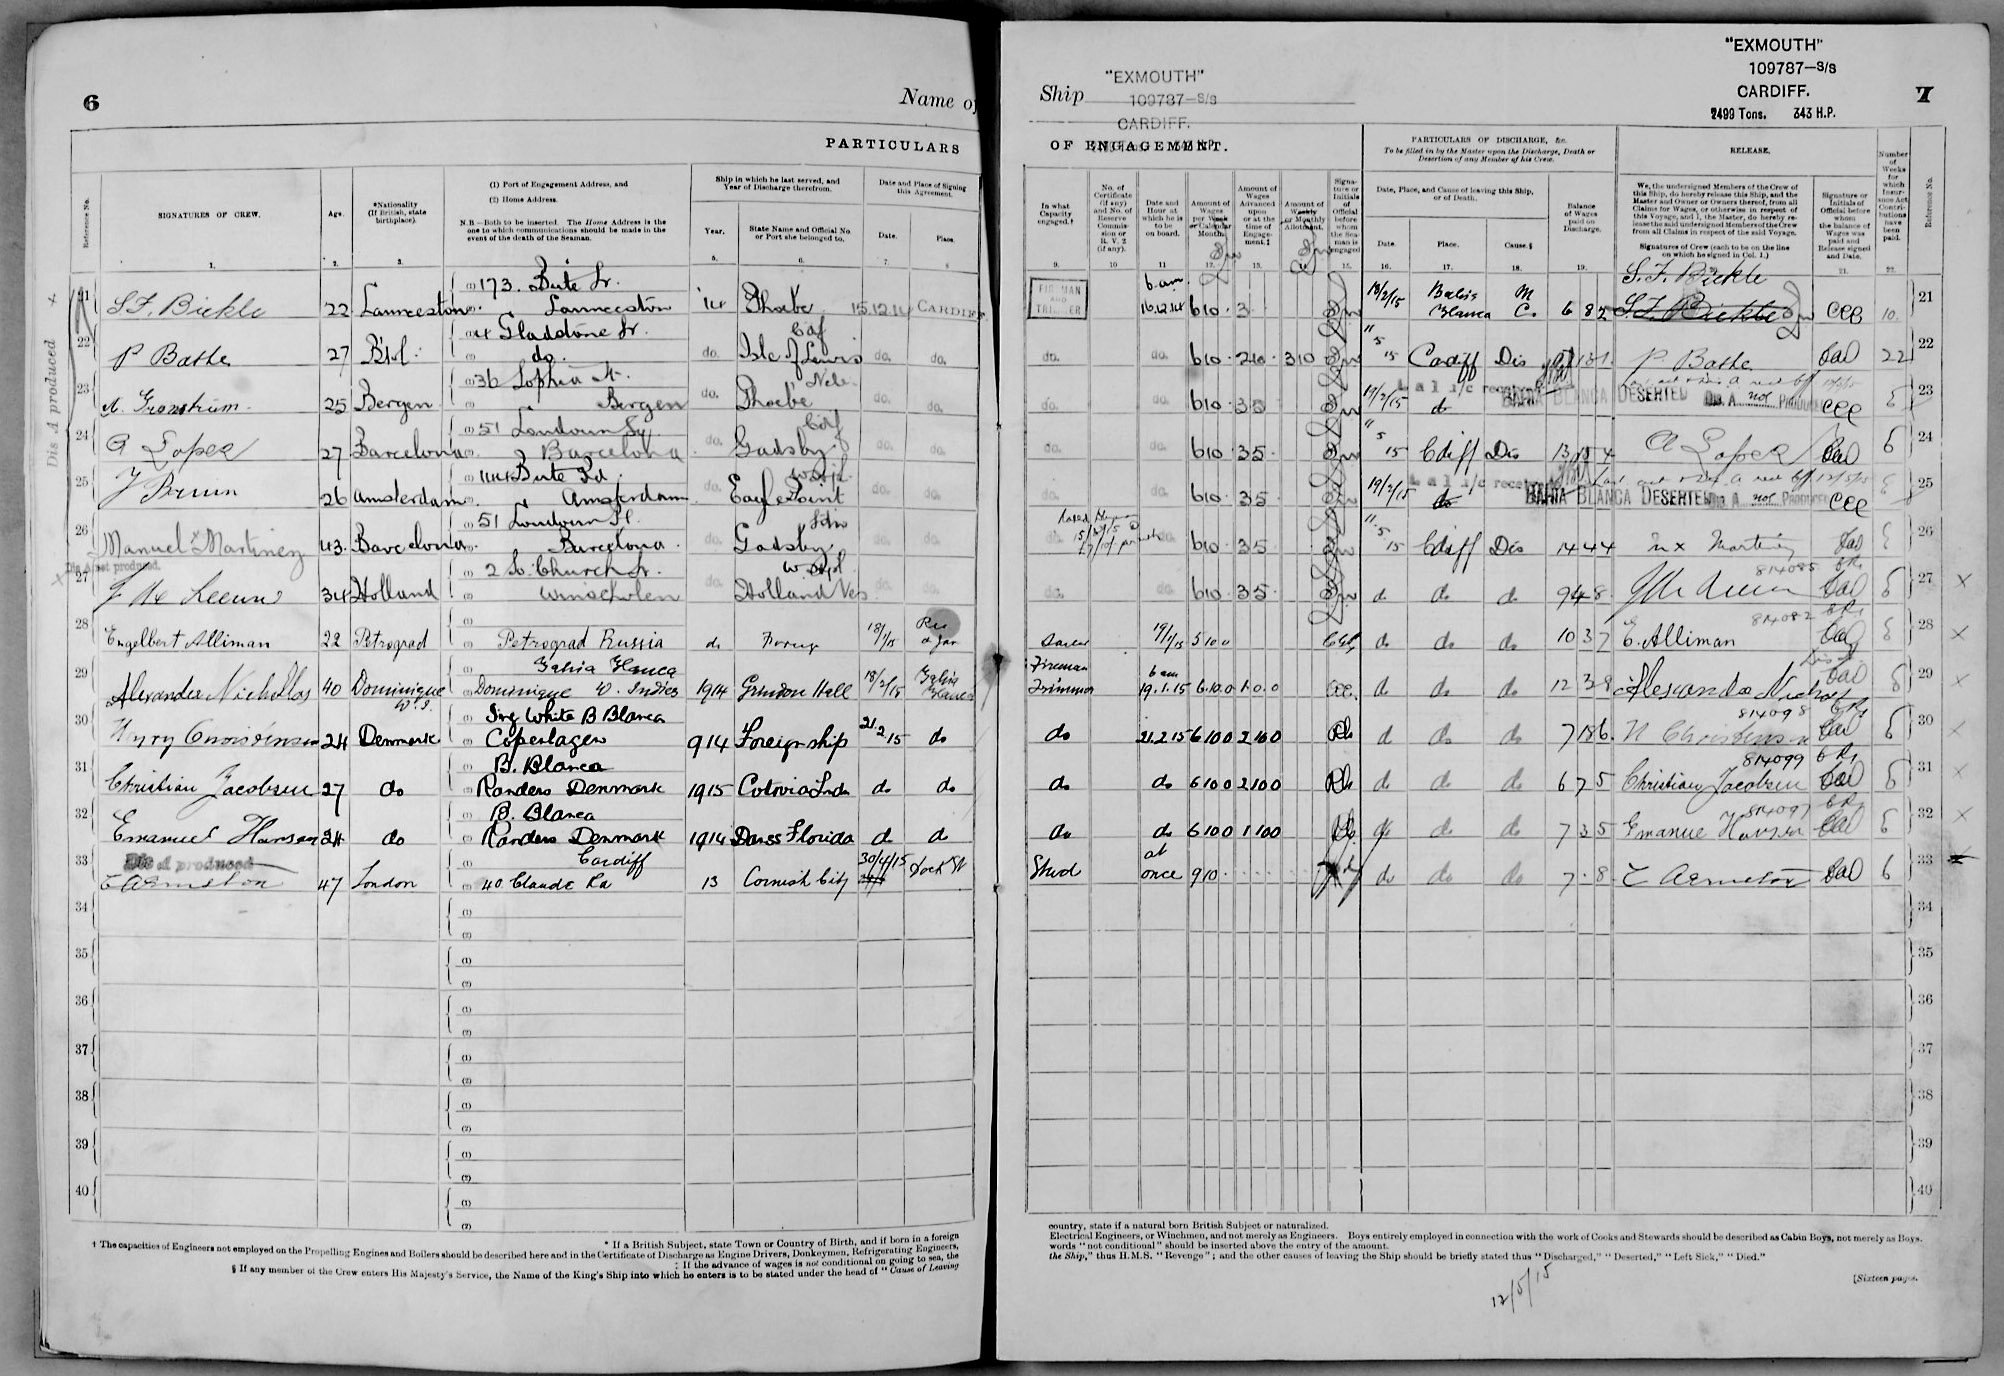 6
Name of
PARTICULARS
Reference No.
SIGNATURES OF CREW.
Age.
*Nationality (If British, state birthplace).
(1) Port of Engagement Address, and
(2) Home Address.
N.B.—Both to be inserted. The Home Address is the one to which communications should be made in the event of the death of the Seaman.
Ship in which he last served, and Year of Discharge therefrom.
Year.
State Name and Official No. or Port she belonged to.
Date and Place of Signing this Agreement.
Date.
Place.
1. 2. 3. 5. 6. 7. 8
Dis A produced x
21 S.F. Bickle 22 Launceston (1) 173. Bute St. (2) Launceston '14 Phoebe 15.12.14 CARDIFF
22 P Bathe 27 B'stol (1) 4 Gladstone St. (2) do. do. Isle of Lewis Caf do. do.
23 25 Bergen (1) 36 Sophia St. (2) Bergen do. Phoebe do. do.
24 A Lopez 27 Barcelona (1) 51 Loudoun Sq. (2) Barcelona do. Gadsby Cdf do. do.
25 J Bruin 26 Amsterdam (1) 144 Bute Rd (2) Amsterdam do. Eagle Point do. do.
26 Manuel x Martinez 43. Barcelona (1) 51 Loudoun Pl. (2) Barcelona do. Gadsby do. do.
x Dis A not produced.
27 34 Holland (1) 2 So. Church St. (2) Winschoten do. Holland do. do.
28 Engelbert Alliman 22 Petrograd Petrograd Russia do 18/1/15
29 Alexander Nichollas 40 Dominique W.I. (1) Bahia Blanca (2) Dominique W. Indies 1914 Grindon Hall 18/2/15 Bahia Blanca
30 24 Denmark (1) Sing White B Blanca (2) Copenhagen 914 Foreign ship 21 2 15 do
31 Christian Jacobsen 27 do (1) B. Blanca (2) Randers Denmark 1915 do do
32 Emanuel Hansen 24 do (1) B. Blanca (2) Randers Denmark 1914 Florida do d
Dis A produced
33 E Armston 47 London (1) Cardiff (2) 40 Claude Rd 13 Cornish City 30/4/15 Dock St
34
35
36
37
38
39
40
* If a British Subject, state Town or Country of Birth, and if born in a foreign
† The capacities of Engineers not employed on the Propelling Engines and Boilers should be described here and in the Certificate of Discharge as Engine Drivers, Donkeymen, Refrigerating Engineers,
‡ If the advance of wages is not conditional on going to sea, the
§ If any member of the Crew enters His Majesty's Service, the Name of the King's Ship into which he enters is to be stated under the head of "Cause of Leaving
Ship
"EXMOUTH"
109787—S/S
CARDIFF.
"EXMOUTH"
109787—S/S
CARDIFF.
2499 Tons. 343 H.P.
7
OF ENGAGEMENT.
PARTICULARS OF DISCHARGE, &c.
To be filled in by the Master upon the Discharge, Death or Desertion of any Member of his Crew.
RELEASE.
Number of Weeks for which Insurance Act Contributions have been paid.
Reference No.
In what Capacity engaged.†
No. of Certificate (if any) and No. of Reserve Commission or R. V. 2 (if any).
Date and Hour at which he is to be on board.
Amount of Wages per Week or Calendar Month.
Amount of Wages Advanced upon or at the time of Engagement.‡
Amount of Weekly or Monthly Allotment.
Signature or Initials of Official before whom the Seaman is engaged
Date, Place, and Cause of leaving this Ship, or of Death.
Date.
Place.
Cause.§
Balance of Wages paid on Discharge.
We, the undersigned Members of the Crew of this Ship, do hereby release this Ship, and the Master and Owner or Owners thereof, from all Claims for Wages, or otherwise in respect of this Voyage, and I, the Master, do hereby release the said undersigned Members of the Crew from all Claims in respect of the said Voyage.
Signatures of Crew (each to be on the line on which he signed in Col. 1.)
Signature or Initials of Official before whom the balance of Wages was paid and Release signed and Date.
9. 10 11 12. 13. 14. 15. 16. 17. 18. 19. 21. 22.
S.F. Bickle
FIREMAN AND TRIMMER 6 am 16.12.14 6 10 3 18/2/15 Bahia Blanca M C. 6 8 2 S.F. Bickle CCC 10. 21
do. do. 6 10 2 10 3 10 " 5 15 Cardiff Dis P Bathe 22 22
do. do. 6 10 3 5 19/2/15 do L a l i/c received BAHIA BLANCA DESERTED Dis. A not PRODUCED CCC 6 23
do. do. 6 10 3 5 " 5 15 Cdiff Dis 13 15 4 A Lopez 6 24
do. do. 6 10 3 5 19/2/15 do L a l i/c received BAHIA BLANCA DESERTED Dis. A not PRODUCED CCC 6 25
do. 6 10 3 5 11.5 15 Cdiff Dis 14 4 4 m x Martinez 26
do. do. 6 10 3 5 d do do 9 4 8 814085 6 27 x
19/1/15 5 10 0 do do do 10 3 7 814082 E. Alliman 6 28 x
Fireman Trimmer 6 am 19.1.15 6.10.0 1.0.0 do do do 12 3 8 Alexander 6 29 x
do 21.2.15 6 10 0 2 10 0 d do do 7 18 6 814098 N Christensen 6 30 x
do do 6 10 0 2 10 0 do do do 6 7 5 814099 Christian Jacobsen 6 31 x
do do 6 10 0 1 10 0 do do do 7 3 5 814097 Emanuel Hansen 6 32 x
at once 9 10 do do do 7 . 8 E Armston 6 33
34
35
36
37
38
39
40
country, state if a natural born British Subject or naturalized.
Electrical Engineers, or Winchmen, and not merely as Engineers. Boys entirely employed in connection with the work of Cooks and Stewards should be described as Cabin Boys, not merely as Boys.
words "not conditional" should be inserted above the entry of the amount.
the Ship," thus H.M.S. "Revenge"; and the other causes of leaving the Ship should be briefly stated thus "Discharged," "Deserted," "Left Sick," "Died."
12/5/15
[Sixteen pages.